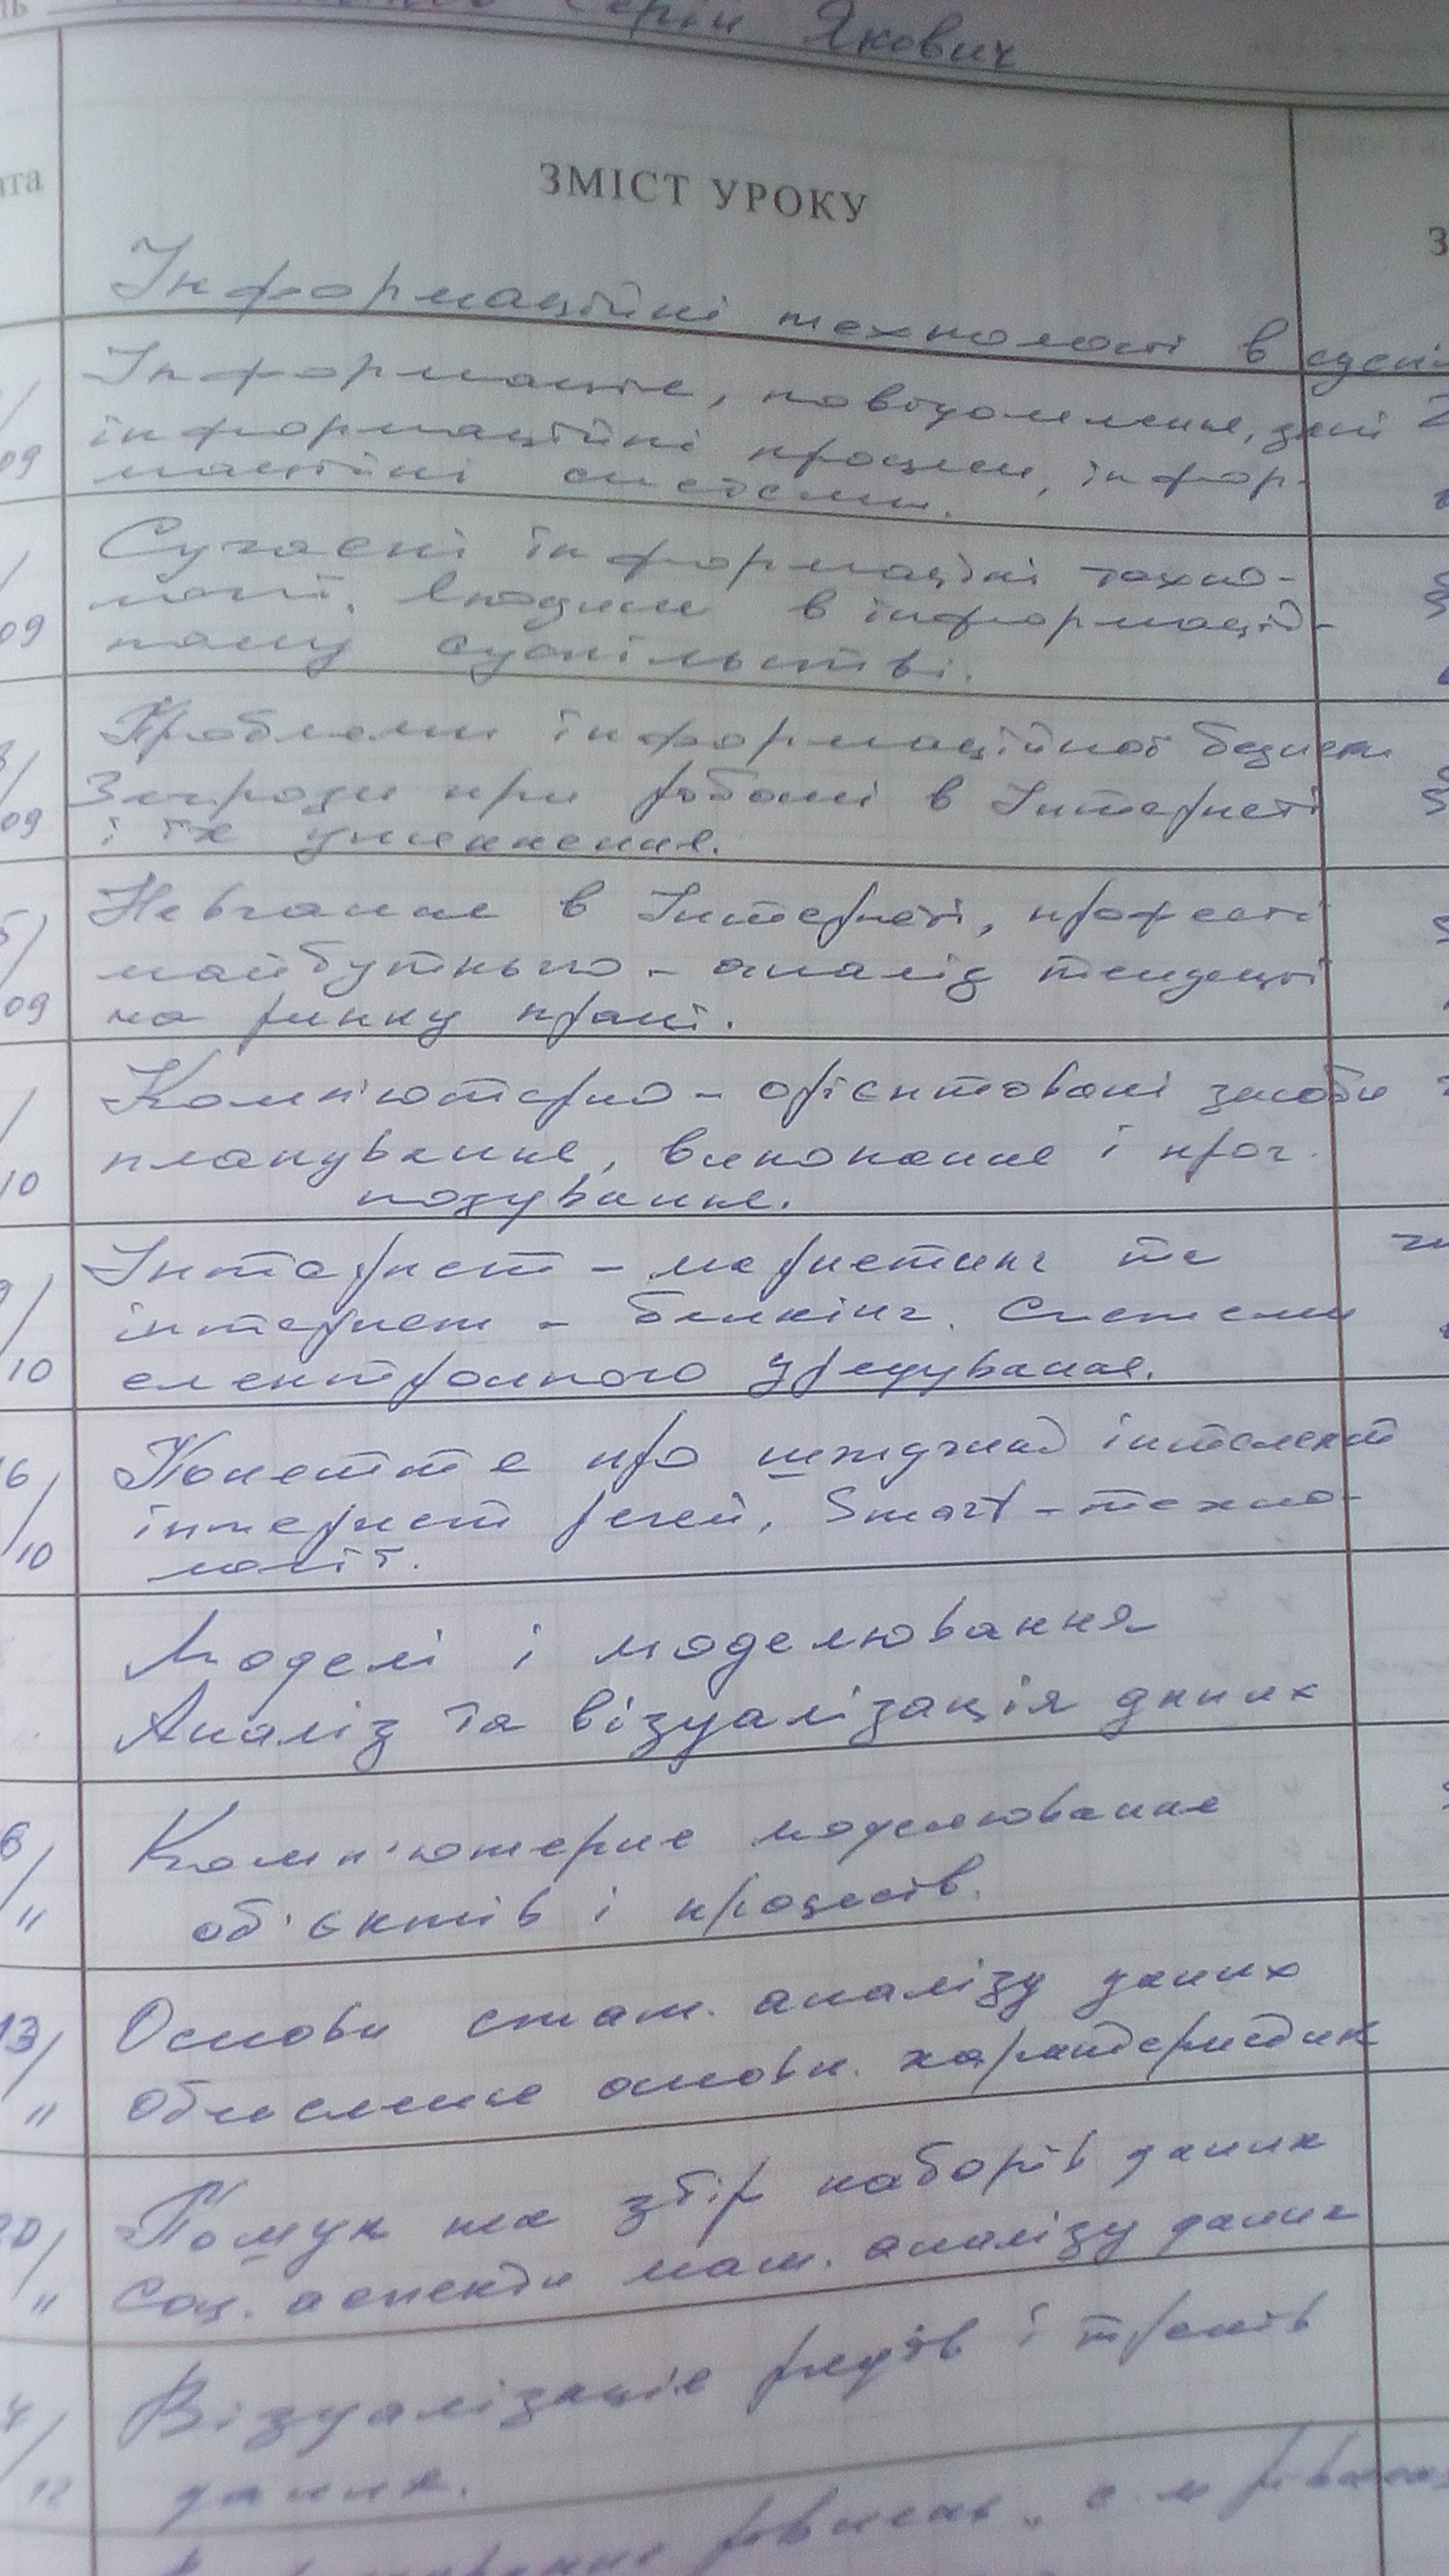 Якович
ЗМІСТ УРОКУ
Інформаційні технології в суспі
Інформація, повідомлення, дані
09 інформаційні процеси, інфор-
маційні системи.
Сучасні інформаційні техно-
логії. Людина в інформацій-
09 ному суспільстві.
Проблеми інформаційної безпеки
09 Загрози при роботі в Інтернеті
і їх уникнення.
5/ Навчання в Інтернеті, професії
майбутнього - аналіз тенденцій
09 на ринку праці.
Комп'ютерно - орієнтовані засоби
10 планування, виконання і прог.
нозування.
Інтернет - маркетинг та
інтернет - банкінг. Системи
10 електронного урядування.
16/ Поняття про штучний інтелект
інтернет речей, Smart - техно-
10 логії.
Моделі і моделювання
Аналіз та візуалізація даних
6/ Комп'ютерне моделювання
" об'єктів і процесів.
13/ Основи стат. аналізу даних
" Обчислення основн. характеристик
20/ Пошук та збір наборів даних
" Соц. аспекти мат. аналізу даних
Візуалізація рядів і трендів
12 даних.